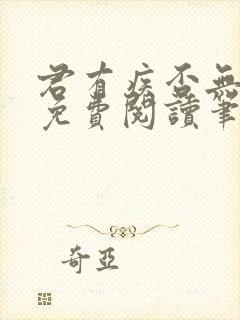 君有疾否無
免費閱讀筆
奇亞